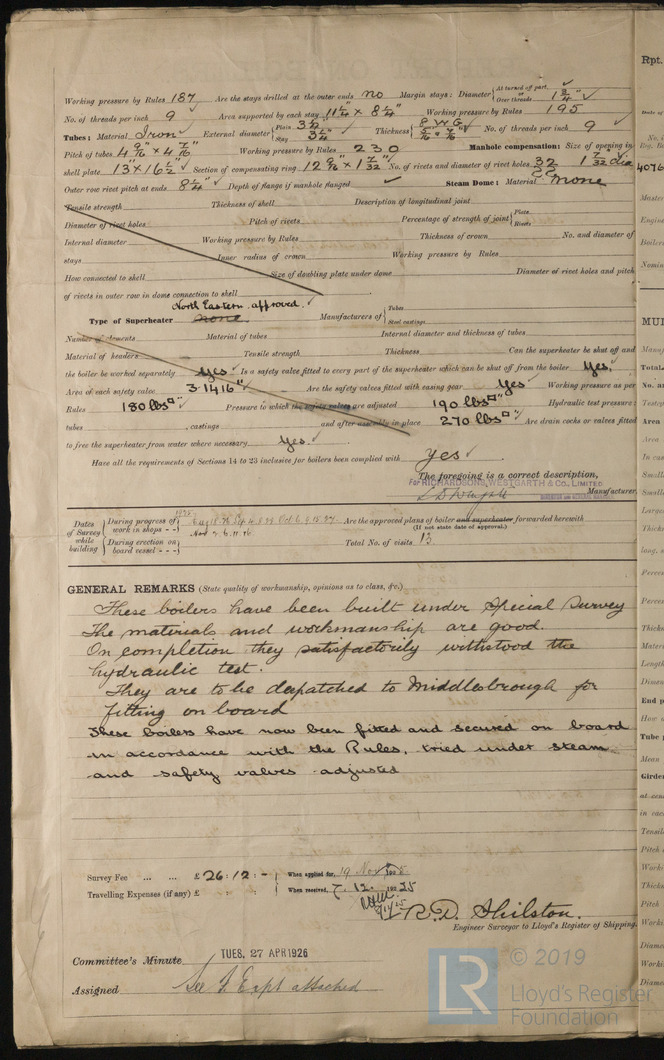 Working pressure by Rules 187 Are the stays drilled at the outer ends no Margin stays: Diameter { At turned off part, Over threads 1 3/4" ✓
No. of threads per inch 9 Area supported by each stay 11 1/4" × 8 1/4" Working pressure by Rules 195
Tubes: Material Iron ✓ External diameter { Plain 3 1/4" Stay 3 1/4" Thickness { 8 W.G. 5/16" & 3/8" ✓ No. of threads per inch 9
Pitch of tubes 4 9/16 × 4 7/16" Working pressure by Rules 230 Manhole compensation: Size of opening in
shell plate 13" × 16 1/2" ✓ Section of compensating ring 12 9/16 × 1 7/32" ✓ No. of rivets and diameter of rivet holes 32 1 7/32 dia
Outer row rivet pitch at ends 8 1/4" ✓ Depth of flange if manhole flanged ✓ Steam Dome: Material none
Tensile strength Thickness of shell Description of longitudinal joint
Diameter of rivet holes Pitch of rivets Percentage of strength of joint { Plate Rivets
Internal diameter Working pressure by Rules Thickness of crown No. and diameter of
stays Inner radius of crown Working pressure by Rules
How connected to shell Size of doubling plate under dome Diameter of rivet holes and pitch
of rivets in outer row in dome connection to shell
Type of Superheater North Eastern approved. ✓ none Manufacturers of { Tubes Steel castings
Number of elements Material of tubes Internal diameter and thickness of tubes
Material of headers Tensile strength Thickness Can the superheater be shut off and
the boiler be worked separately Yes ✓ Is a safety valve fitted to every part of the superheater which can be shut off from the boiler Yes. ✓
Area of each safety valve 3.1416" ✓ Are the safety valves fitted with easing gear Yes ✓ Working pressure as per
Rules 180 lbs □" ✓ Pressure to which the safety valves are adjusted 190 lbs □" ✓ Hydraulic test pressure:
tubes , castings and after assembly in place 270 lbs □" ✓ Are drain cocks or valves fitted
to free the superheater from water where necessary Yes. ✓
Have all the requirements of Sections 14 to 23 inclusive for boilers been complied with Yes ✓
The foregoing is a correct description,
For RICHARDSONS, WESTGARTH & CO., LIMITED.
Manufacturer.
Dates of Survey while building { During progress of work in shops - - { 1925
During erection on board vessel - - - {
Are the approved plans of boiler and superheater forwarded herewith
(If not state date of approval.)
Total No. of visits 13
GENERAL REMARKS (State quality of workmanship, opinions as to class, &c.)
These boilers have been built under Special Survey
The materials and workmanship are good.
On completion they satisfactorily withstood the
hydraulic test.
They are to be despatched to Middlesbrough for
fitting on board
These boilers have now been fitted and secured on board
in accordance with the Rules, tried under steam
and safety valves adjusted
Survey Fee ... ... £ 26 : 12 : - } When applied for, 19 Nov 1925
Travelling Expenses (if any) £ : : } When received, 7.12. 1925
R.D. Shilston.
Engineer Surveyor to Lloyd's Register of Shipping.
Committee's Minute TUES. 27 APR 1926
Assigned See attached
Rpt.
4076
LR © 2019
Lloyd's Register
Foundation